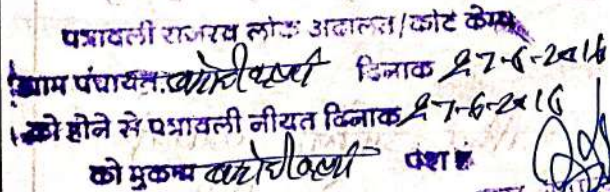 पत्रावली राजस्व लोक अदालत/कोर्ट केम्प
ग्राम पंचायत. दिनाक 27-6-2016
को होने से पत्रावली नीयत दिनाक 27-6-2016
को मुकाम पेश है